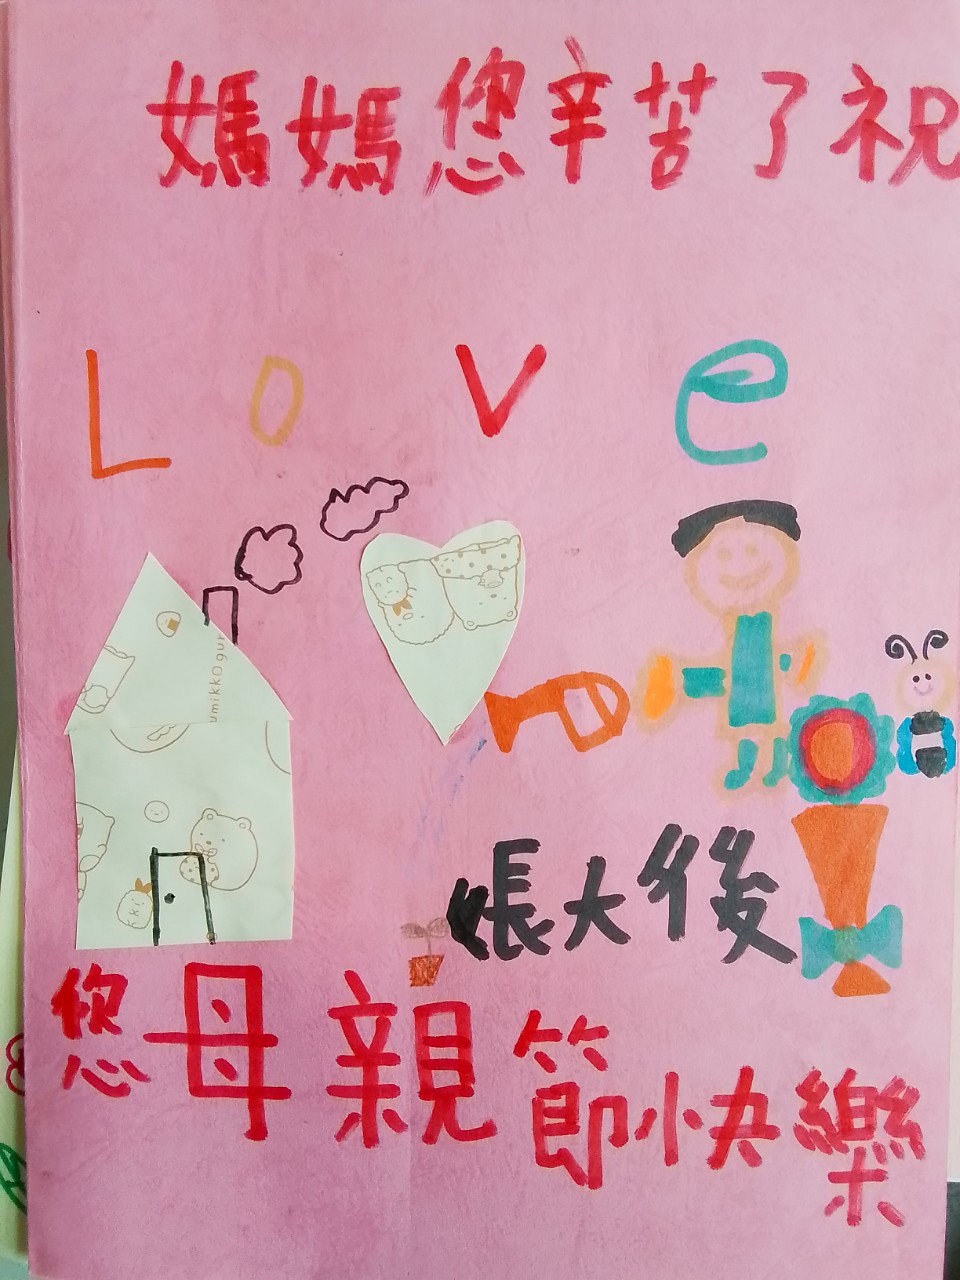 媽媽您辛苦了祝
Love
umikkOgur
長大後
您母親節快樂